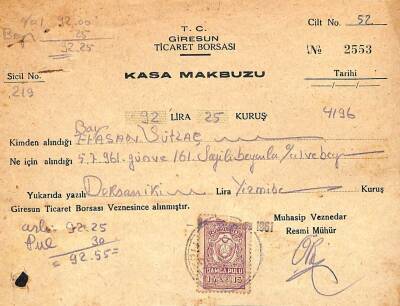 92.00
25
92.25
Cilt No. 52
T. C.
GİRESUN
TİCARET BORSASI
№ 2553
Sicil No.
219
KASA MAKBUZU
Tarihi
92 LİRA 25 KURUŞ
4196
Bay
Kimden alındığı HASAN SÜTLAÇ
Ne için alındığı 5.7.961 günve 161. Sayılı beyanla
Yukarıda yazılı Doksaniki Lira Yirmibe Kuruş
Giresun Ticaret Borsası Veznesince alınmıştır.
Muhasip Veznedar
Resmi Mühür
92.25
Pul 30
= 92.55=
1961
DAMGA PULU
15